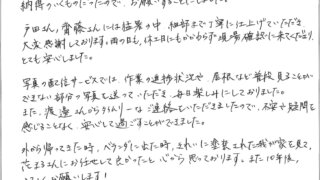 納得のいくものだったので、お願いすることにしました。
戸田さん、齊藤さんには猛暑の中、細部まで丁寧に仕上げていただき
大変感謝しております。雨の日も、休工日にもかかわらず現場確認に来て下さり、
とても安心しました。
写真の配信サービスでは、作業の進捗状況や屋根など普段見ることが
できない部分の写真を送っていただき、毎日楽しみにしていました。
また、渡邉さんからもタイムリーなご連絡をいただきましたので、不安や疑問を
感じることなく、安心して過ごすことができました。
外から帰ってきた時、ベランダに出た時、きれいに塗装された我が家を見て、
さんにお任せして良かったと心から思っております。また10年後、
よろしくお願いします！